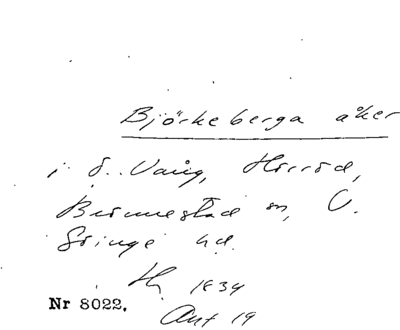 Björkeberga åker
i ö. Vång, Hörröd,
Brönnestad sn, V.
Göinge hd.
1834
Nr 8022.
Akt 19